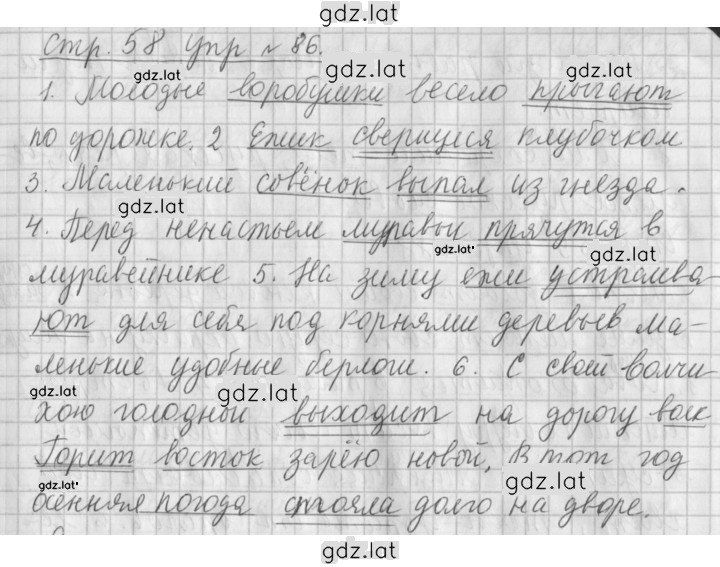 gdz.lat
Стр. 58 упр № 86.
gdz.lat
gdz.lat
gdz.lat
1. Молодые воробушки весело прыгают
по дорожке. 2 Ёжик свернулся клубочком
3. Маленький совёнок выпал из гнезда.
gdz.lat
4. Перед ненастьем муравьи прячутся в
gdz.lat
gdz.lat
муравейнике 5. На зиму ежи устраива
ют для себя под корнями деревьев ма-
ленькие удобные берлоги. 6. С своей волчи
gdz.lat
gdz.lat
хою голодной выходит на дорогу волк
Горит восток зарёю новой. В тот год
gdz.lat
осенняя погода стояла долго на дворе.
gdz.lat